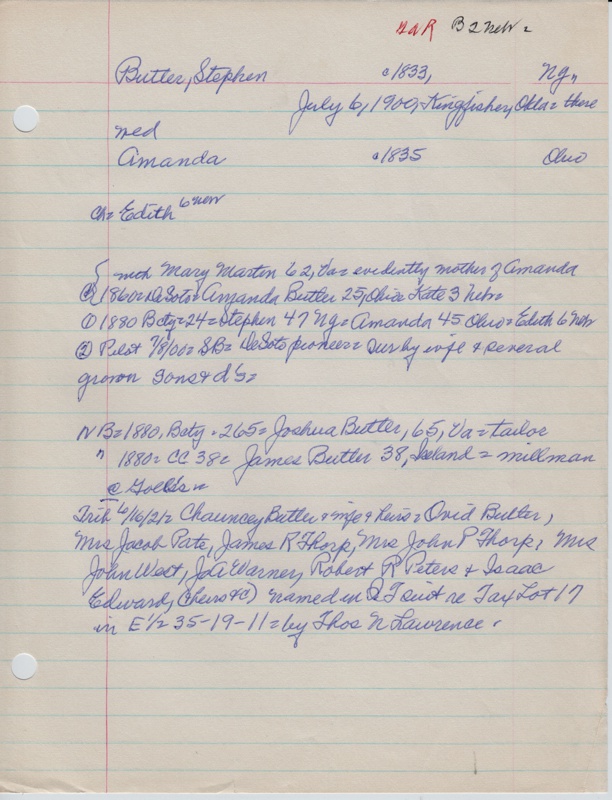 GaR B2 Nebr =
Butler, Stephen c1833, Ny,,
July 6, 1900, Kingfisher, Okla = there
med
Amanda c1835 Ohio
Ch = Edith 6 Nebr
{ with Mary Marten 62, Va = evidently mother of Amanda
1860 = DeSoto = Amanda Butler 25, Ohio = Kate 3 Nebr
① 1880 Bcty = 24 = Stephen 47 Ny = Amanda 45 Ohio = Edith 6 Nebr
② Pilot 7/8/00 = SB = DeSoto pioneer = Sur by wife + several
grown sons + d's =
NB = 1880, Bcty = 265 = Joshua Butler, 65, Va = tailor
" 1880 = CC 38 = James Butler 38, Ireland = millman
@ Goll's =
Trib 6/16/21 = Chauncey Butler + wife + heirs = Ovid Butler,
Mrs Jacob Pate, James R Thorp, Mrs John P Thorp, Mrs
John West, JA Warner, Robert R Peters + Isaac
Edward, (heirs &c) named in Q T suit re Tax Lot 17
in E 1/2 35-19-11 = by Thos N Lawrence.